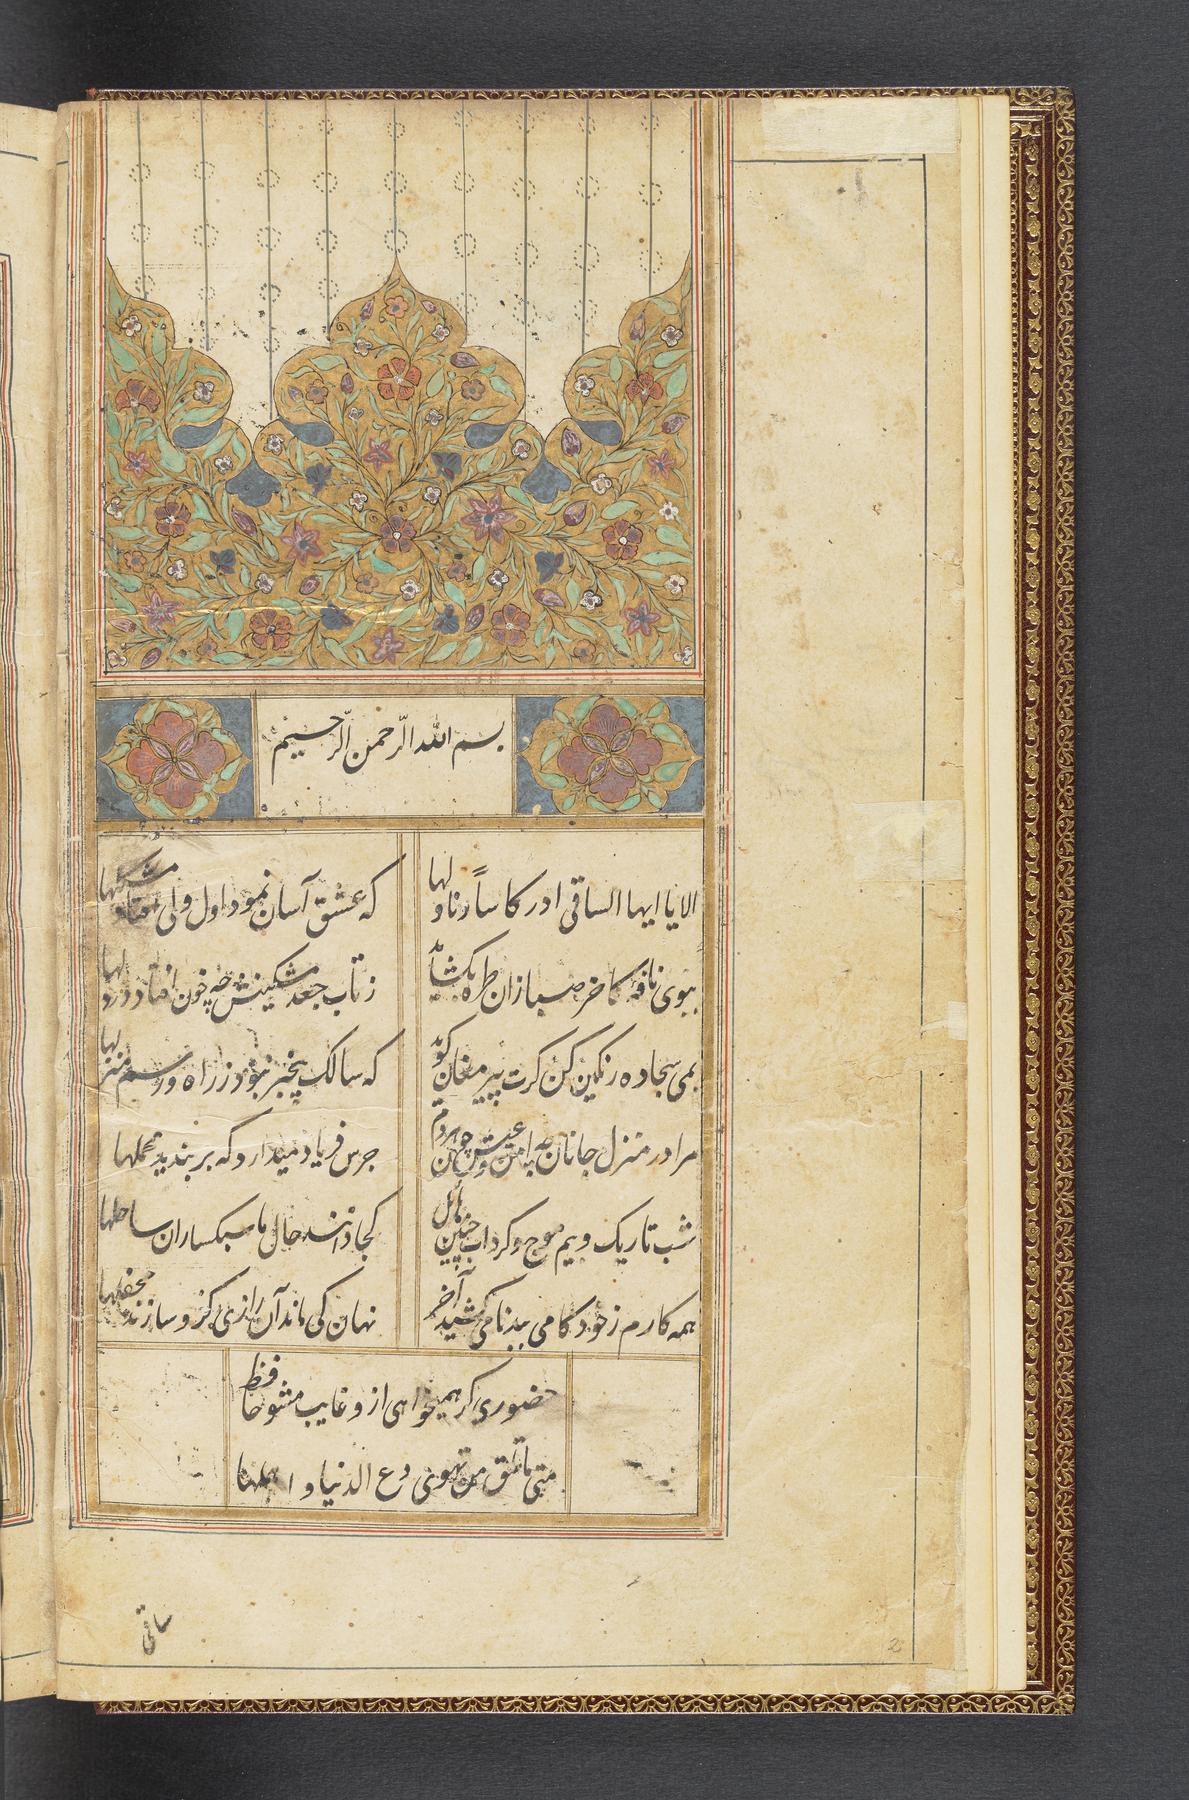 بسم الله الرّحمن الرّحیم
الا یا ایها الساقی ادر کاساً و ناولها
که عشق آسان نمود اول ولی افتاد مشکلها
ببوی نافه کاخر صبا زان طره بکشاید
ز تاب جعد مشکینش چه خون افتاد در دلها
بمی سجاده رنکین کن کرت پیر مغان کوید
که سالک بیخبر نبود ز راه و رسم منزلها
مرا در منزل جانان چه امن و عیش چون هردم
جرس فریاد میدارد که بربندید محملها
شب تاریک و بیم موج و کرداب چنین هائل
کجا دانند حال ما سبکساران ساحلها
همه کارم ز خود کامی ببدنامی کشید آخر
نهان کی ماند آن رازی کزو سازند محفلها
حضوری کر همیخواهی ازو غایب مشو حافظ
متی ما تلق من تهوی دع الدنیا و اهملها
ساقی
2